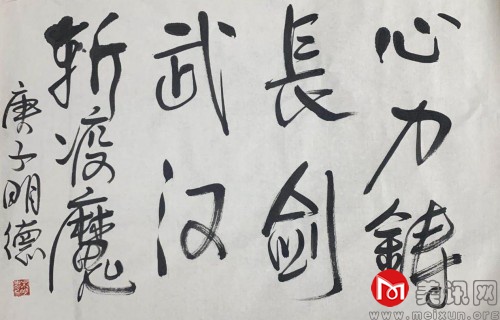 心力鑄
長剑
武汉
斩疫魔
庚子明德
美讯网
www.meixun.org